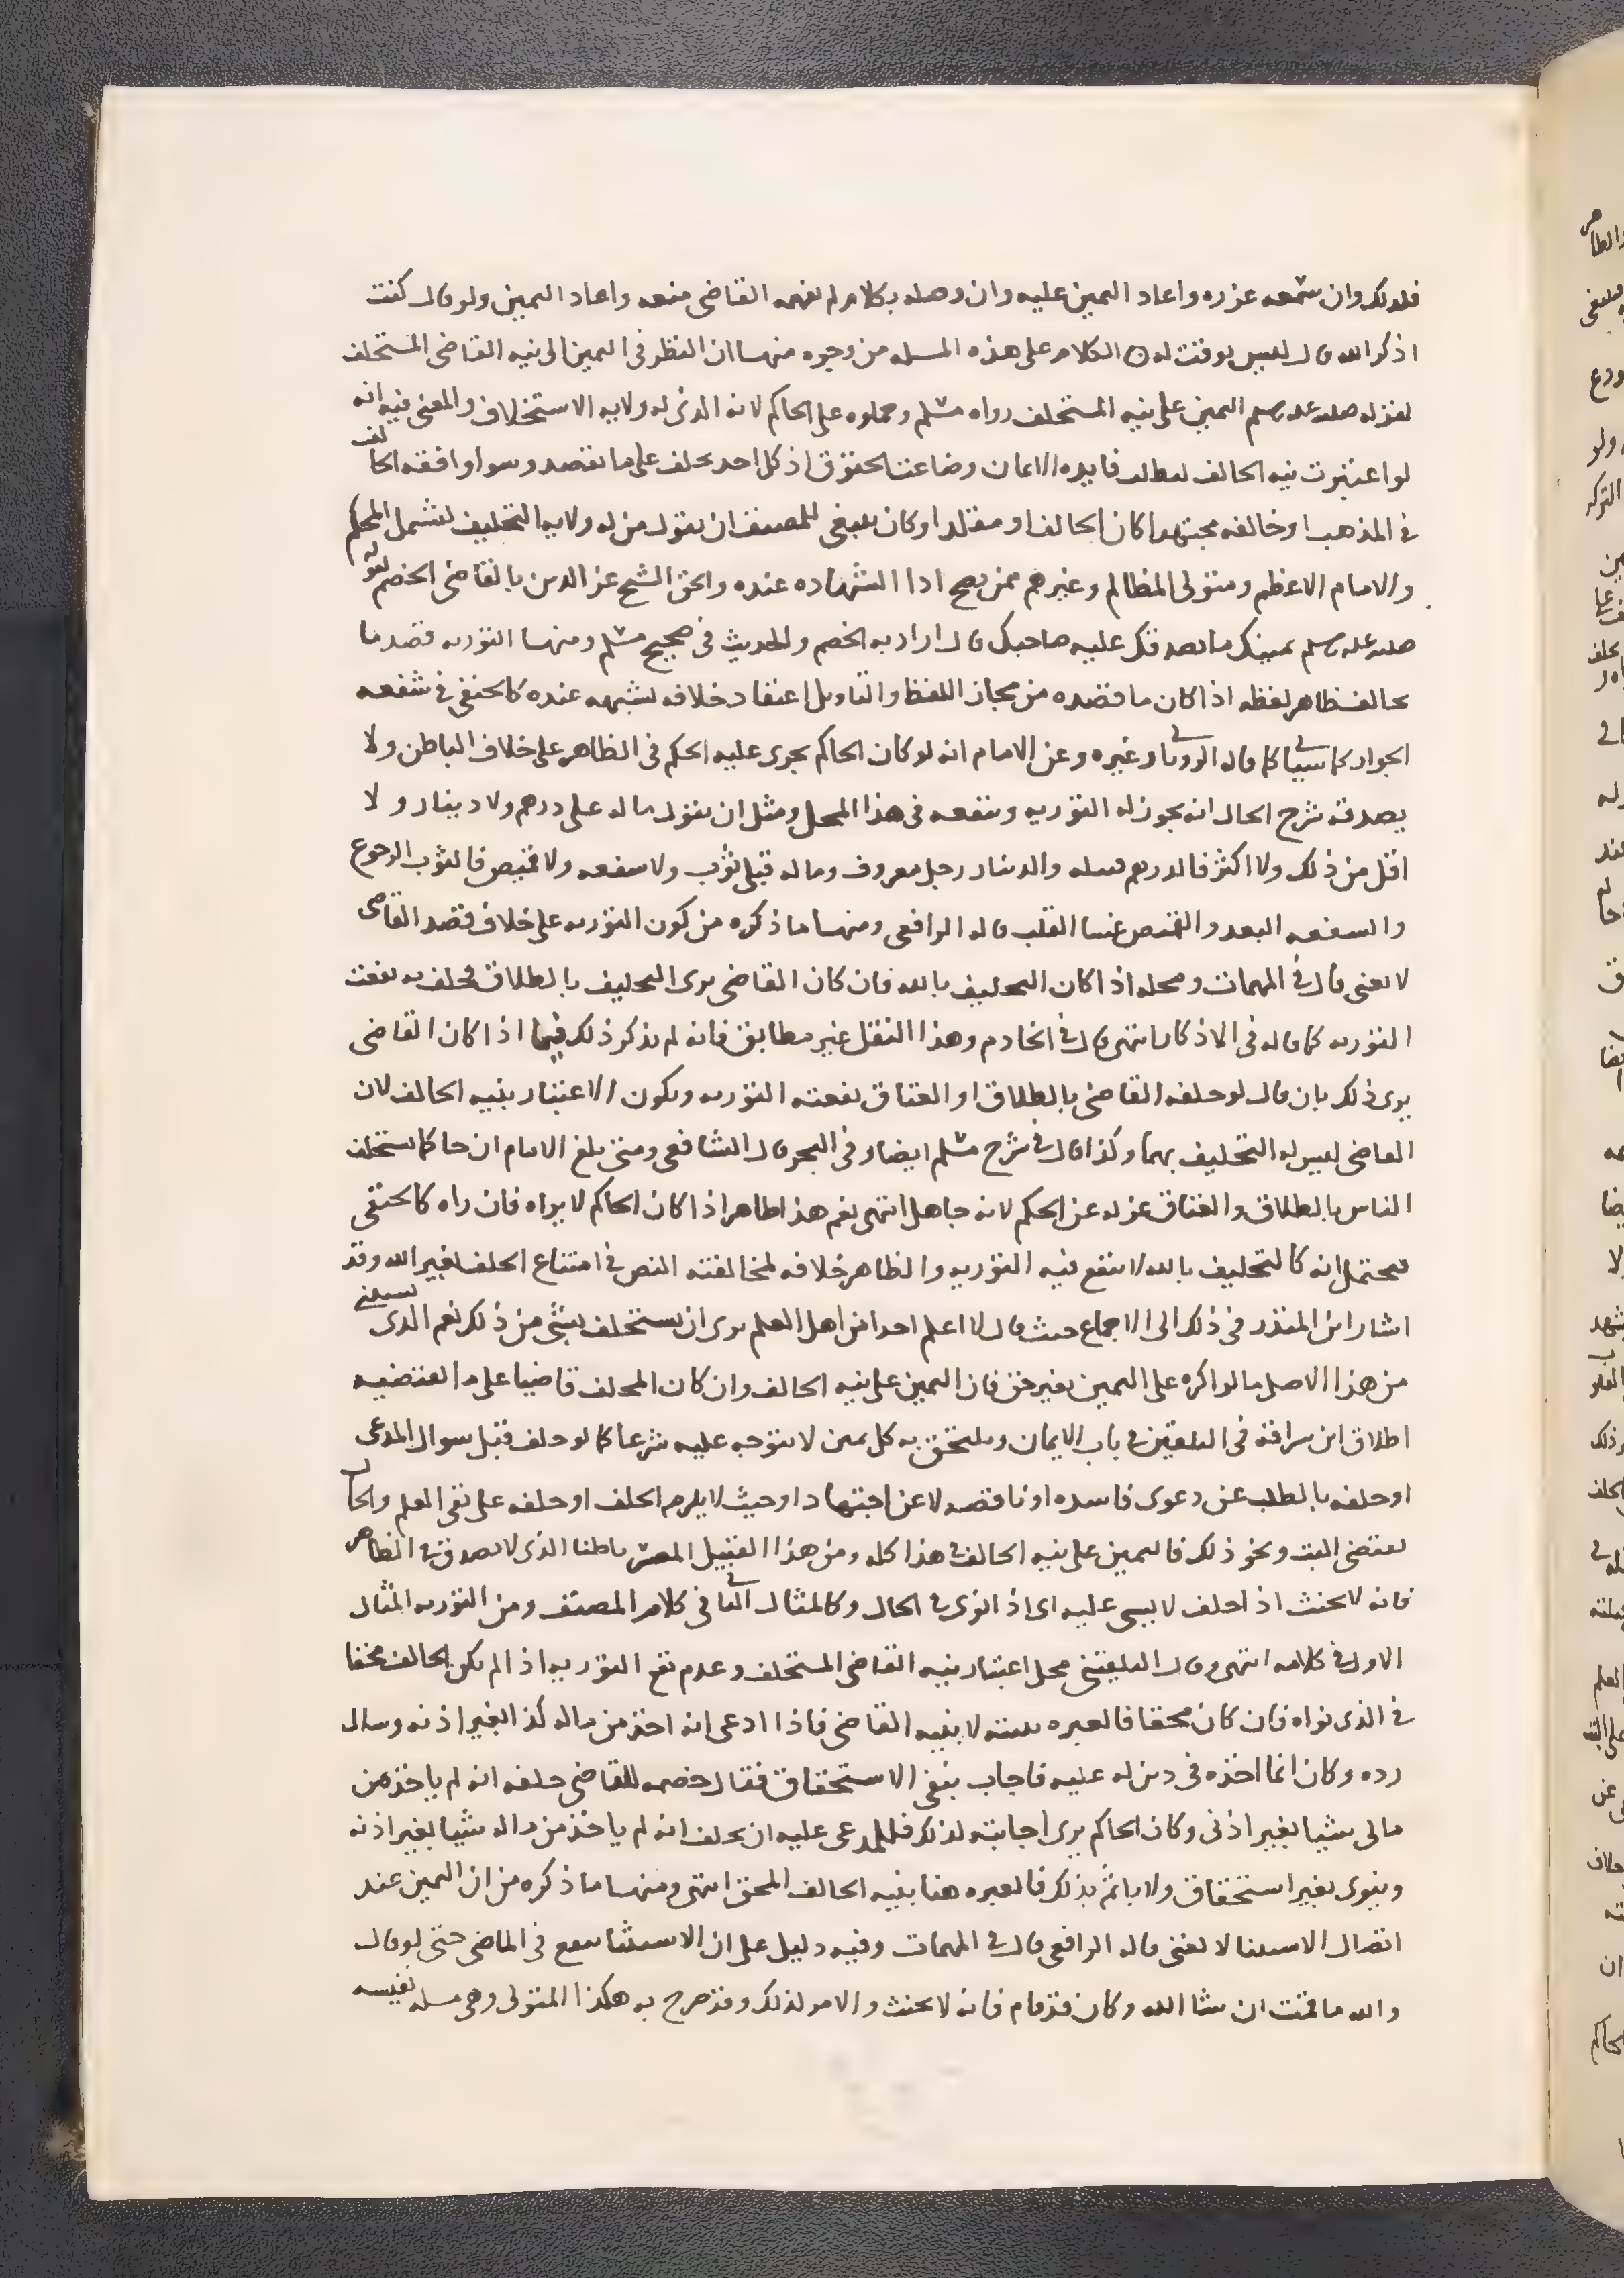 فلذلك وان سمعه عزره واعاد اليمين عليه وان وصله بكلام لم يفهمه القاضي منعه واعاد اليمين ولو قال كنت
اذكر الله قال ليس بوقت له ن الكلام على هذه المسله من وجوه منها ان النظر في اليمين الى نيه القاضي المستحلف
لقوله صلى الله عليه وسلم اليمين على نيه المستحلف رواه مسلم وحملوه على الحاكم لانه الذي له ولايه الاستحلاف والمعنى فيه انه
لو اعتبرت نيه الحالف لبطلت فايده الايمان وضاعت الحقوق اذ كل احد يحلف على ما يقصد وسوا وافقه الحالف
في المذهب او خالفه مجتهدا كان الحالف او مقلدا وكان ينبغي للمصنف ان يقول من له ولايه التحليف ليشمل المحكم
والامام الاعظم ومتولي المظالم وغيرهم ممن يصح ادا الشهاده عنده والحق الشيخ عز الدين بالقاضي الخصم لقوله
صلى الله عليه وسلم يمينك ما يصدقك عليه صاحبك قال اراد به الخصم والحديث في صحيح مسلم ومنها التوريه قصد ما
يخالف ظاهر لفظه اذا كان ما قصده من مجاز اللفظ والتاويل اعتقاد خلافه لشبهه عنده كالحنفي في شفعه
الجوار كما سياتي كما قاله الروياني وغيره وعن الامام انه لو كان الحاكم يجري عليه الحكم في الظاهر على خلاف الباطن ولا
يصدقه شرح الحال انه يجوز له التوريه وينفعه في هذا المحل ومثل ان يقول ماله على درهم ولا دينار ولا
اقل من ذلك ولا اكثر فالدرهم قبيله والدينار رجل معروف وماله قبلي ثوب ولا سفعه ولا قميص فالثوب الرجوع
والسفعه البعد والقميص غشا القلب قاله الرافعي ومنها ما ذكره من كون التوريه على خلاف قصد القاضي
لا يغني قال في المهمات ومحله اذا كان التحليف بالله فان كان القاضي يرى التحليف بالطلاق فحلف به نفعت
التوريه كما قاله في الاذكار انتهى قال في الخادم وهذا النقل غير مطابق فانه لم يذكر ذلك فيما اذا كان القاضي
يرى ذلك بان قال لو حلفه القاضي بالطلاق او العتاق نفعته التوريه ويكون الاعتبار بنيه الحالف لان
القاضي ليس له التحليف بهما وكذا قال في شرح مسلم ايضا وفي البحر قال الشافعي ومتى بلغ الامام ان حاكما يستحلف
الناس بالطلاق والعتاق عزله عن الحكم لانه جاهل انتهى نعم هذا ظاهر اذا كان الحاكم لا يراه فان راه كالحنفي
فيحتمل انه كالتحليف بالله لا تنفع فيه التوريه والظاهر خلافه لمخالفته النص في امتناع الحلف لغير الله وقد
اشار ابن المنذر في ذلك الى الاجماع حيث قال لا اعلم احدا من اهل العلم يرى ان يستحلف بشي من ذلك نعم الذي يستثنى
من هذا الاصل ما لو اكره على اليمين بغير حق فان اليمين على نيه الحالف وان كان المحلف قاضيا على ما اقتضيه
اطلاق ابن سراقه في التلقين في باب الايمان ويلتحق به كل يمين لا تتوجه عليه شرعا كما لو حلف قبل سوال المدعي
او حلفه بالطلب عن دعوى فاسده او ناقصه لا عن اجتهاد او حيث لا يلزم الحلف او حلفه على نفي العلم والحال
يقتضي البت ونحو ذلك فاليمين على نيه الحالف في هذا كله ومن هذا القبيل المعسر باطنا الذي لا يصدق في الظاهر
فانه لا يحنث اذا حلف لا شي عليه اي اذ انوى في الحال وكالمثال الثاني في كلام المصنف ومن التوريه المثال
الاول في كلامه انتهى وقال البلقيني محل اعتبار نيه القاضي المستحلف وعدم نفع التوريه اذا لم يكن الحالف محقا
في الذي نواه فان كان محقا فالعبره بنيته لا بنيه القاضي فاذا ادعى انه اخذ من ماله كذا بغير اذنه وسال
رده وكان انما اخذه في دين له عليه فاجاب بنفي الاستحقاق فقال خصمه للقاضي حلفه انه لم ياخذ من
مالي شيا بغير اذني وكان الحاكم يرى اجابته لذلك فللمدعى عليه ان يحلف انه لم ياخذ من ماله شيا بغير اذنه
وينوي بغير استحقاق ولا ياثم بذلك فالعبره هنا بنيه الحالف المحق انتهى ومنها ما ذكره من ان اليمين عند
اتصال الاستثنا لا تغني قاله الرافعي قال في المهمات وفيه دليل على ان الاستثنا ينفع في الماضي حتى لو قال
والله ما قمت ان شا الله وكان قد قام فانه لا يحنث والامر كذلك وقد صرح به هكذا المتولي وهي مسله نفيسه